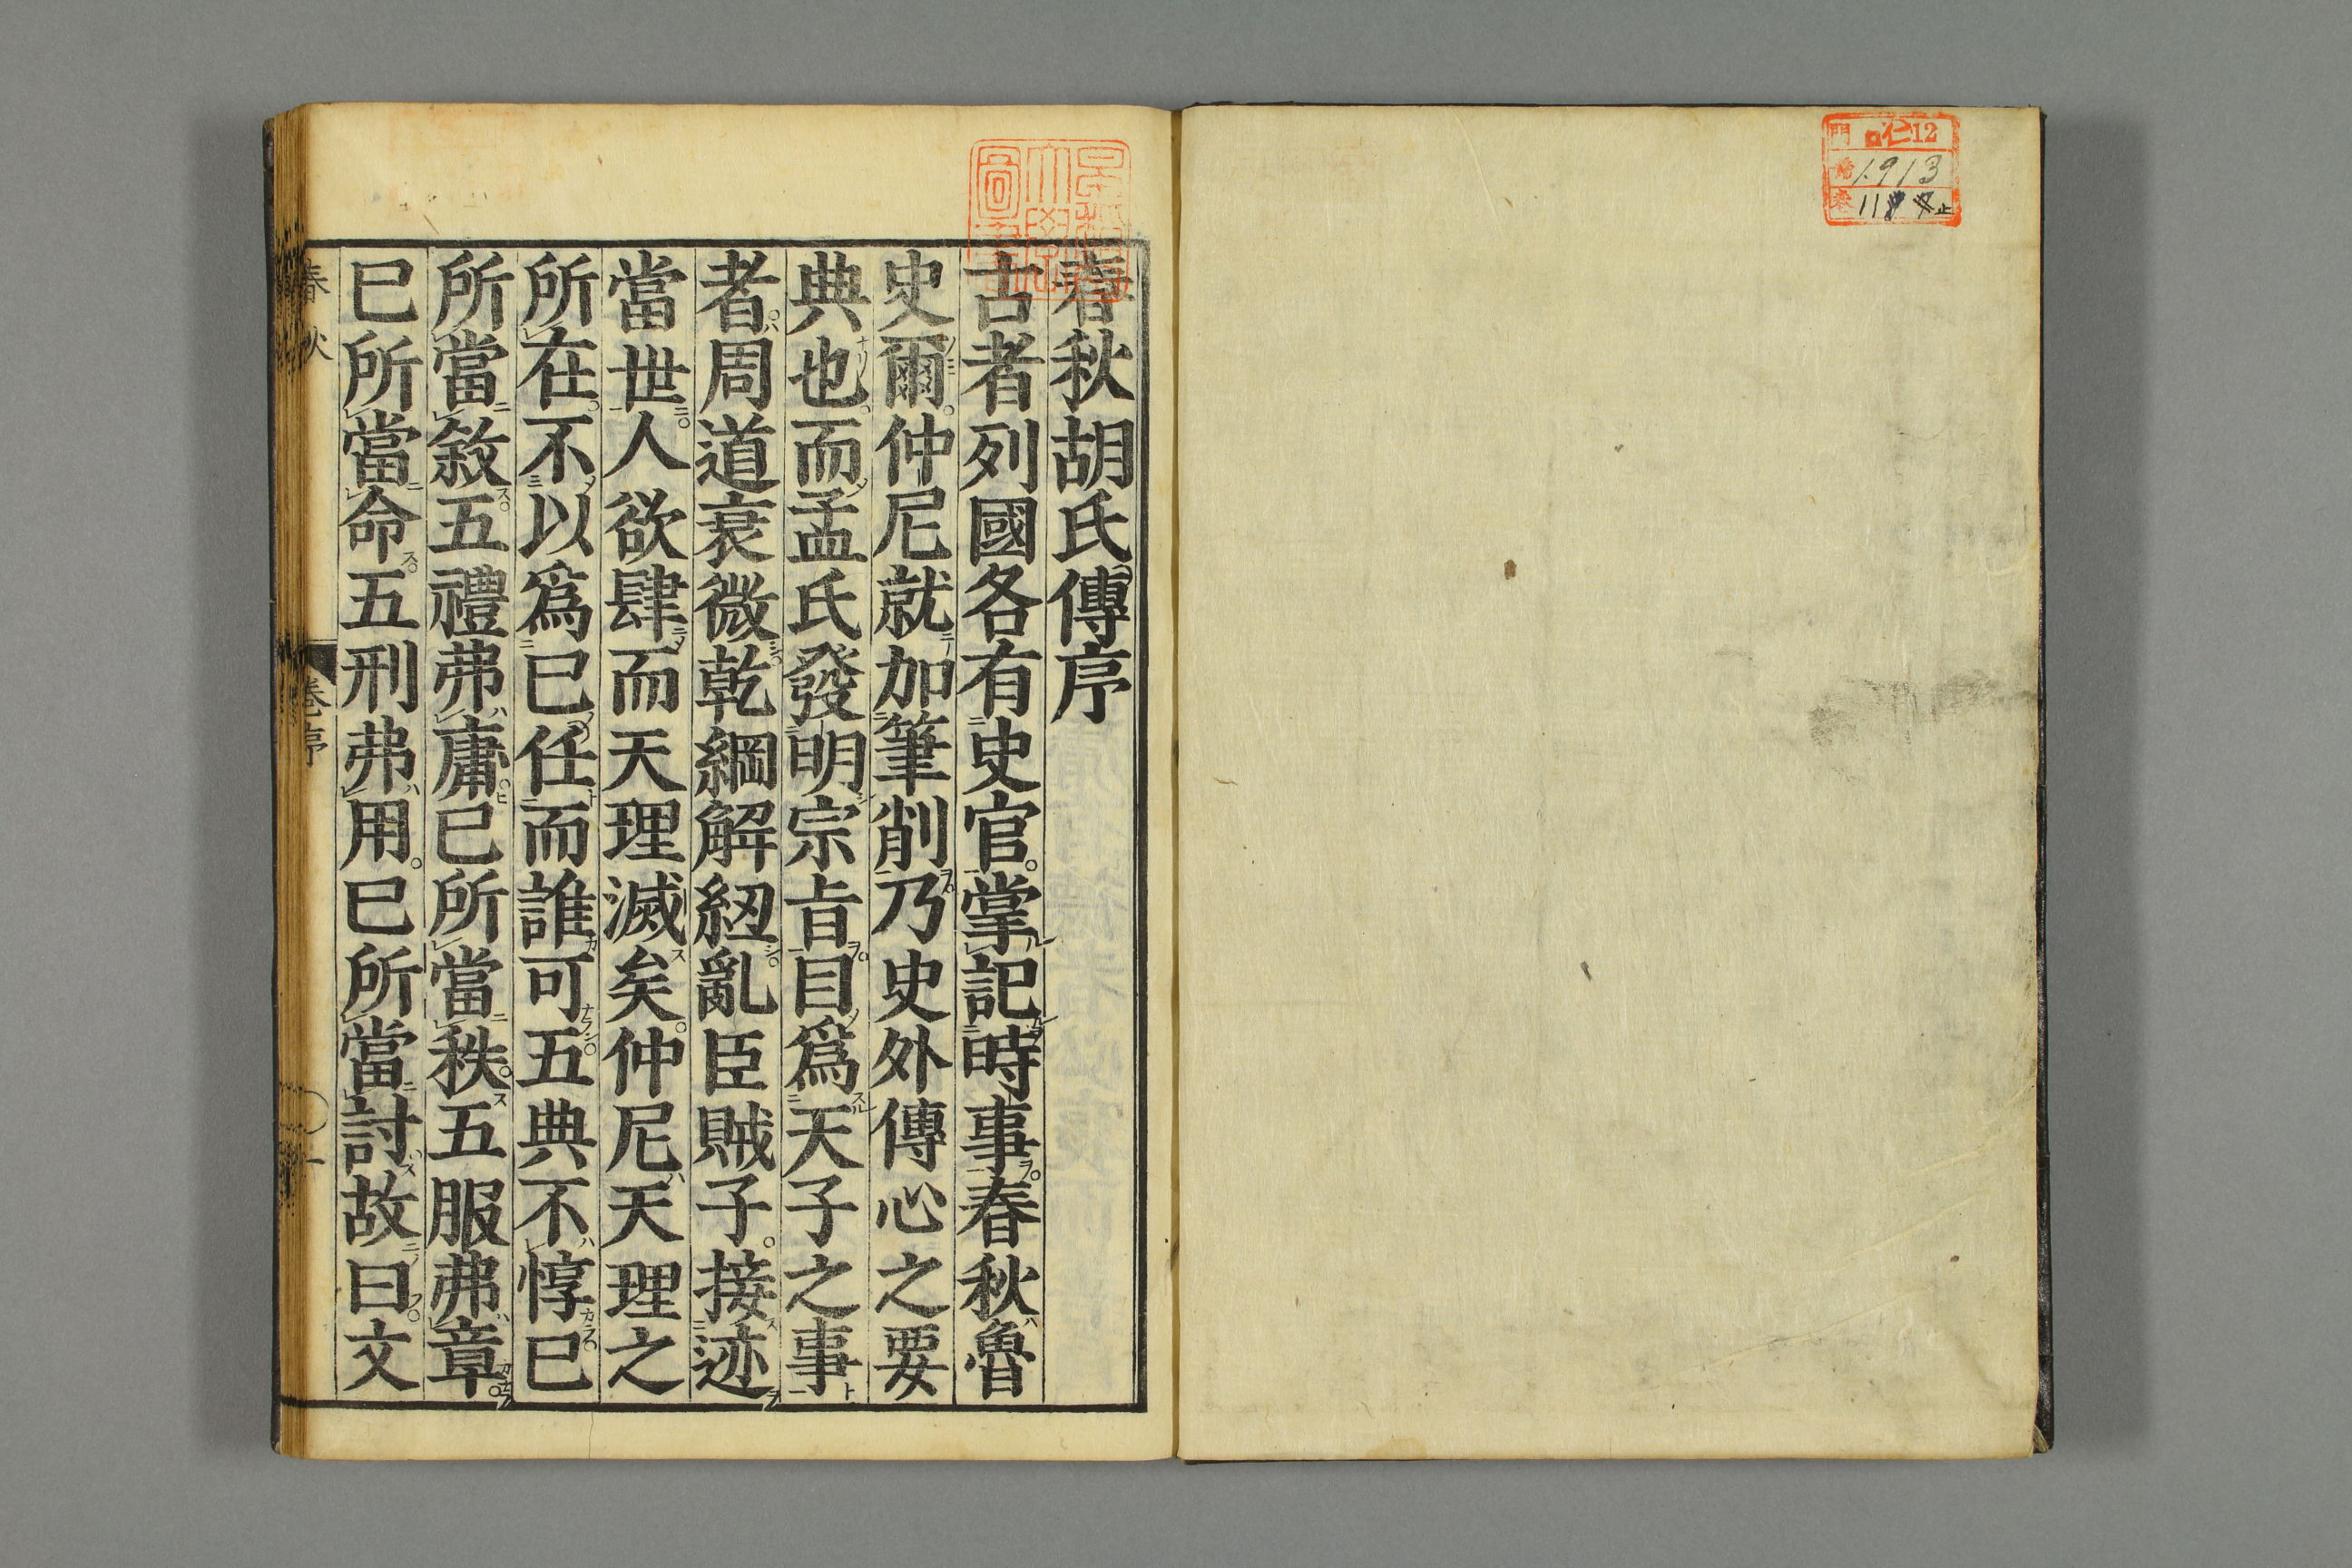 門 ロ仁12
號 1913
卷 11
春秋胡氏傳序
古者列國各有史官掌記時事春秋魯
史爾仲尼就加筆削乃史外傳心之要
典也而孟氏發明宗㫖目爲天子之事
者周道衰微乾綱解紐亂臣賊子接迹
當世人欲肆而天理滅矣仲尼天理之
所在不以爲已任而誰可五典不惇已
所當敘五禮弗庸已所當秩五服弗章
已所當命五刑弗用已所當討故曰文
春秋 卷序 一